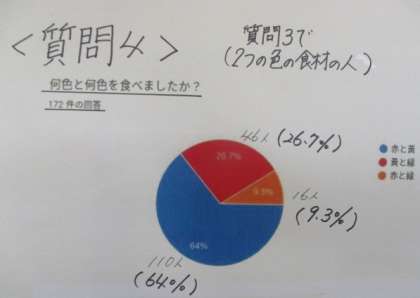 <質問4>
質問3で
(2つの色の食材の人)
何色と何色を食べましたか？
172 件の回答
46人(26.7%)
26.7%
赤と黄
黄と緑
赤と緑
9.3%
16人
(9.3%)
64%
110人
(64%)